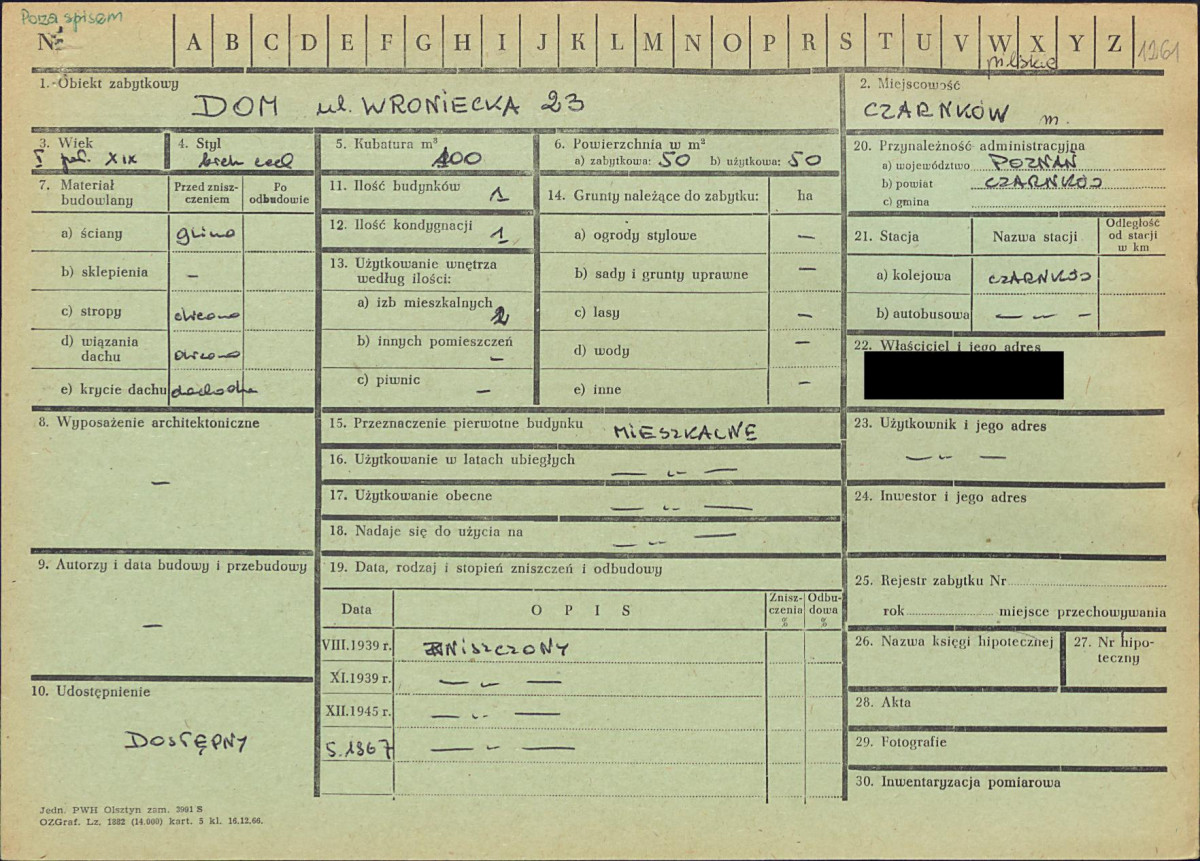 Poza spisem
Nr A B C D E F G H I J K L M N O P R S T U V W X Y Z 1261
pilskie
1. Obiekt zabytkowy
DOM ul. WRONIECKA 23
2. Miejscowość
CZARNKÓW m.
3. Wiek
I poł. XIX
4. Styl
5. Kubatura m³
100
6. Powierzchnia w m²
a) zabytkowa: 50 b) użytkowa: 50
20. Przynależność administracyjna
a) województwo POZNAŃ
b) powiat CZARNKÓW
c) gmina
7. Materiał budowlany
Przed zniszczeniem
Po odbudowie
a) ściany glina
b) sklepienia —
c) stropy drewno
d) wiązania dachu drewno
e) krycie dachu dachówka
11. Ilość budynków 1
12. Ilość kondygnacji 1
13. Użytkowanie wnętrza
według ilości:
a) izb mieszkalnych 2
b) innych pomieszczeń —
c) piwnic —
14. Grunty należące do zabytku: ha
a) ogrody stylowe —
b) sady i grunty uprawne —
c) lasy —
d) wody —
e) inne —
21. Stacja
Nazwa stacji
Odległość
od stacji
w km
a) kolejowa CZARNKÓW
b) autobusowa — „ —
22. Właściciel i jego adres
8. Wyposażenie architektoniczne
—
15. Przeznaczenie pierwotne budynku MIESZKALNE
16. Użytkowanie w latach ubiegłych — „ —
17. Użytkowanie obecne — „ —
18. Nadaje się do użycia na — „ —
23. Użytkownik i jego adres
— „ —
24. Inwestor i jego adres
9. Autorzy i data budowy i przebudowy
—
19. Data, rodzaj i stopień zniszczeń i odbudowy
Data
OPIS
Zniszczenia
%
Odbudowa
%
VIII.1939 r. ZNISZCZONY
XI.1939 r. — „ —
XII.1945 r. — „ —
5.1967 — „ —
25. Rejestr zabytku Nr
rok miejsce przechowywania
26. Nazwa księgi hipotecznej
27. Nr hipoteczny
10. Udostępnienie
DOSTĘPNY
28. Akta
29. Fotografie
30. Inwentaryzacja pomiarowa
Jedn. PWH Olsztyn zam. 3991 S
OZGraf. Lz. 1882 (14.000) kart. 5 kl. 16.12.66.